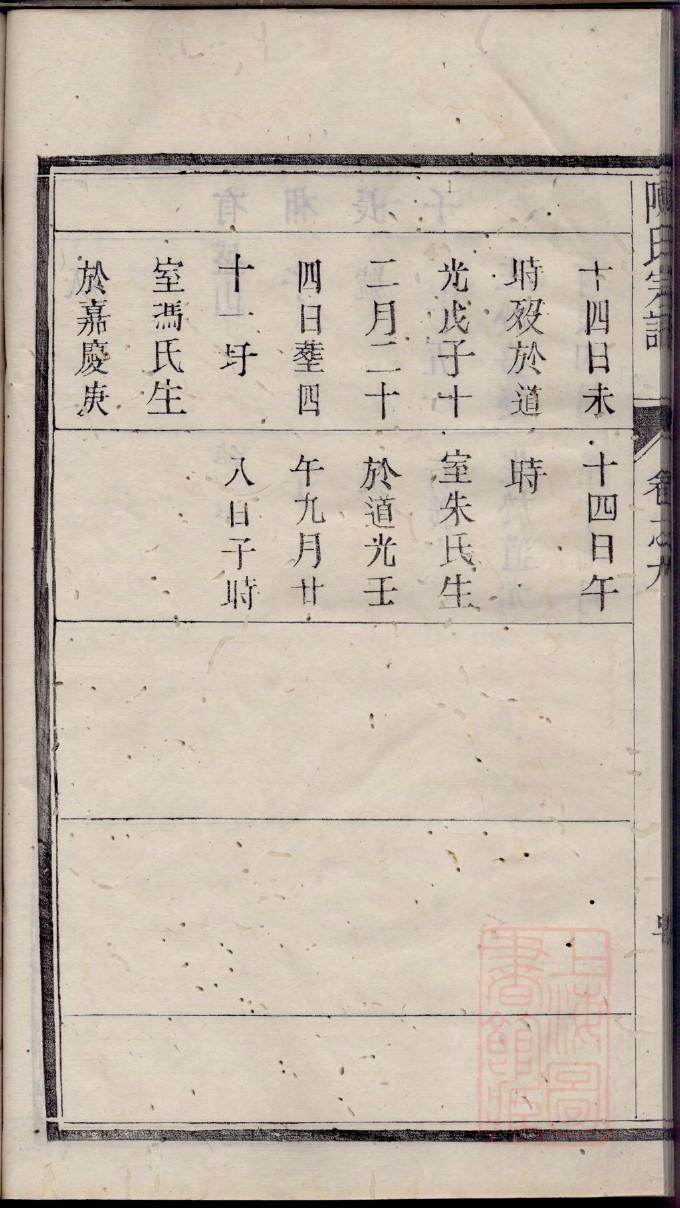 陳氏宗譜
卷之九
十四日未
時歿於道
光戊子十
二月二十
四日塟四
十一圩
室馮氏生
於嘉慶庚
十四日午
時
室朱氏生
於道光壬
午九月廿
八日子時
上海圖
書館藏